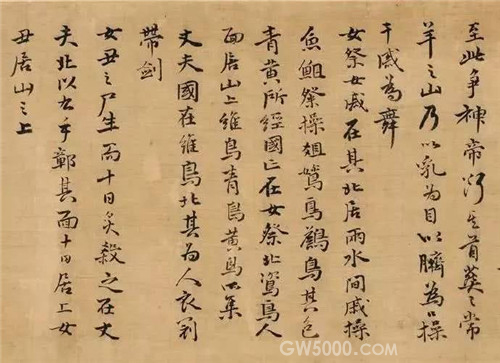 至此爭神帝斷其首葬之常
羊之山乃以乳為目以臍為口操
干戚為舞
女祭女戚在其北居兩水間戚操
魚䱇祭操俎鳥鳥其色
青黃所經國亡在女祭北䳐鳥人
面居山上維鳥青鳥黃鳥所集
丈夫國在維鳥北其為人衣冠
帶劍
女丑之尸生而十日炙殺之在丈
夫北以右手鄣其面十日居上女
丑居山之上
GW5000.COM